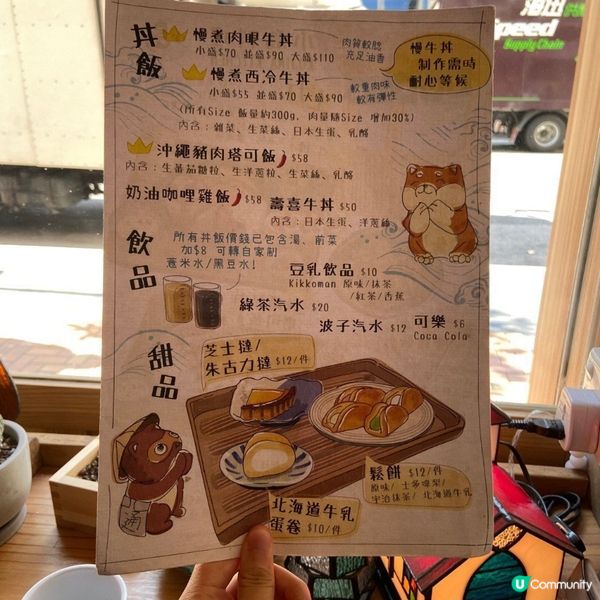 丼飯
慢煮肉眼牛丼
小盛$70 並盛$90 大盛$110
肉質軟腍
充足油香
慢牛丼
制作需時
耐心等候
慢煮西冷牛丼
小盛$55 並盛$70 大盛$90
較重肉味
較有彈性
(所有Size 飯量約300g, 肉量隨Size 增加30%)
內含：雜菜、生菜絲、日本生蛋、乳酪
沖繩豬肉塔可飯 $58
內含：生番茄糖粒、生洋蔥粒、生菜絲、乳酪
奶油咖哩雞飯 $58
壽喜牛丼 $50
內含：日本生蛋、洋蔥絲
飲品
所有丼飯價錢已包含湯、前菜
加$8 可轉自家制
薏米水/黑豆水!
豆乳飲品 $10
Kikkoman 原味/抹茶
/紅茶/香蕉
綠茶汽水 $20
波子汽水 $12
可樂 $6
Coca Cola
甜品
芝士撻/
朱古力撻 $12/件
鬆餅 $12/件
原味/士多啤梨/
宇治抹茶/北海道牛乳
北海道牛乳
蛋卷 $10/件
通
Speed
Supply Chain
U Community